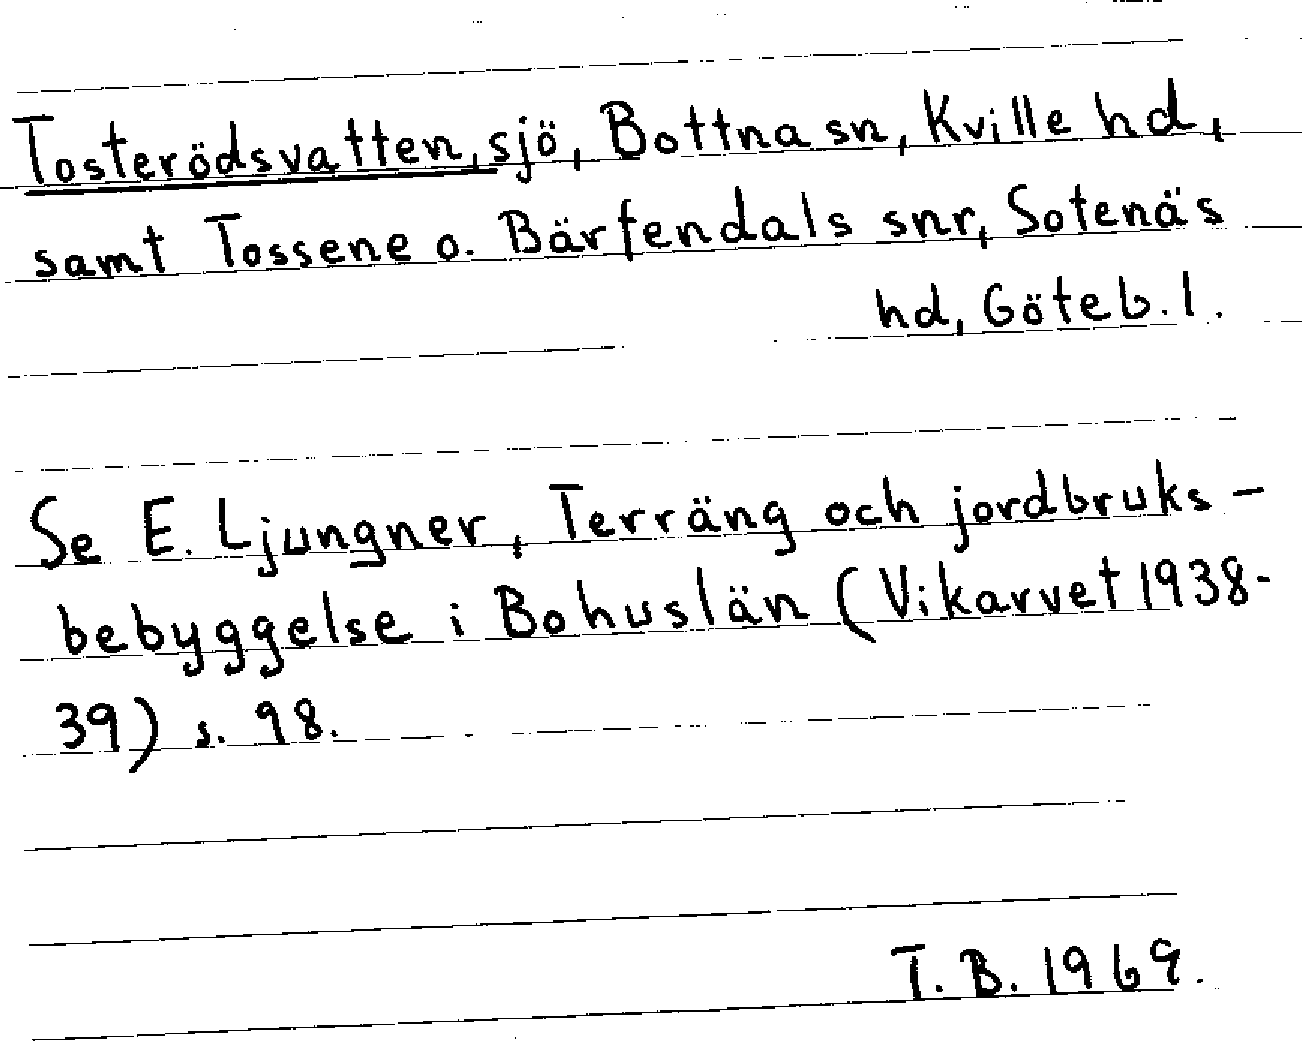 Tosterödsvatten, sjö, Bottna sn, Kville hd,
samt Tossene o. Bärfendals snr, Sotenäs
hd, Göteb. l.
Se E. Ljungner, Terräng och jordbruks-
bebyggelse i Bohuslän (Vikarvet 1938-
39) s. 98.
T. B. 1969.